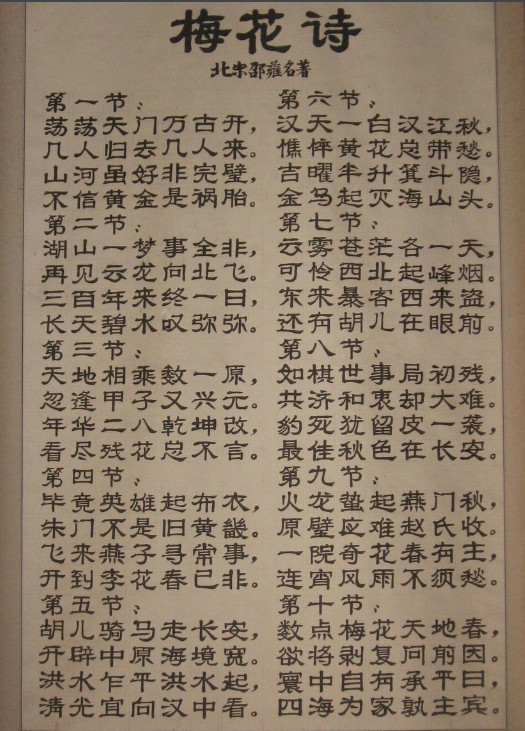 梅花诗
北宋邵雍名著
第一节：
荡荡天门万古开，
几人归去几人来。
山河虽好非完璧，
不信黄金是祸胎。
第二节：
湖山一梦事全非，
再见云龙向北飞。
三百年来终一日，
长天碧水叹弥弥。
第三节：
天地相乘数一原，
忽逢甲子又兴元。
年华二八乾坤改，
看尽残花总不言。
第四节：
毕竟英雄起布衣，
朱门不是旧黄畿。
飞来燕子寻常事，
开到李花春已非。
第五节：
胡儿骑马走长安，
开辟中原海境宽。
洪水乍平洪水起，
清光宜向汉中看。
第六节：
汉天一白汉江秋，
憔悴黄花总带愁。
吉曜半升箕斗隐，
金乌起灭海山头。
第七节：
云雾苍茫各一天，
可怜西北起峰烟。
东来暴客西来盗，
还有胡儿在眼前。
第八节：
如棋世事局初残，
共济和衷却大难。
豹死犹留皮一袭，
最佳秋色在长安。
第九节：
火龙蛰起燕门秋，
原璧应难赵氏收。
一院奇花春有主，
连宵风雨不须愁。
第十节：
数点梅花天地春，
欲将剥复问前因。
寰中自有承平日，
四海为家孰主宾。